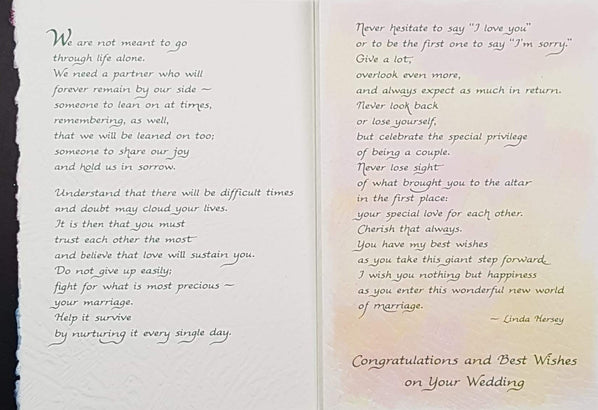 We are not meant to go
through life alone.
We need a partner who will
forever remain by our side ~
someone to lean on at times,
remembering, as well,
that we will be leaned on too;
someone to share our joy
and hold us in sorrow.
Understand that there will be difficult times
and doubt may cloud your lives.
It is then that you must
trust each other the most
and believe that love will sustain you.
Do not give up easily;
fight for what is most precious ~
your marriage.
Help it survive
by nurturing it every single day.
Never hesitate to say "I love you"
or to be the first one to say "I'm sorry."
Give a lot,
overlook even more,
and always expect as much in return.
Never look back
or lose yourself,
but celebrate the special privilege
of being a couple.
Never lose sight
of what brought you to the altar
in the first place:
your special love for each other.
Cherish that always.
You have my best wishes
as you take this giant step forward.
I wish you nothing but happiness
as you enter this wonderful new world
of marriage.
~ Linda Hersey
Congratulations and Best Wishes
on Your Wedding